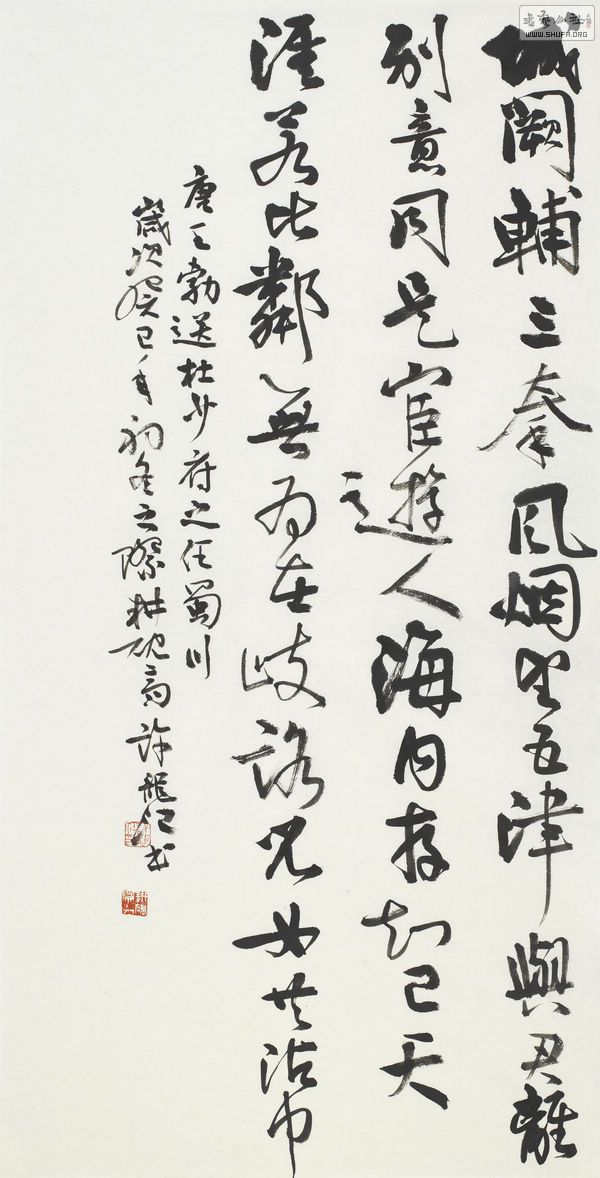 城闕輔三秦風烟望五津與君離
别意同是宦遊人海内存知己天
涯若比鄰無為在歧路兒女共沾巾
唐王勃送杜少府之任蜀川
歲次癸巳年初冬之際耕硯齋許龍書
書藝公社
WWW.SHUFA.ORG